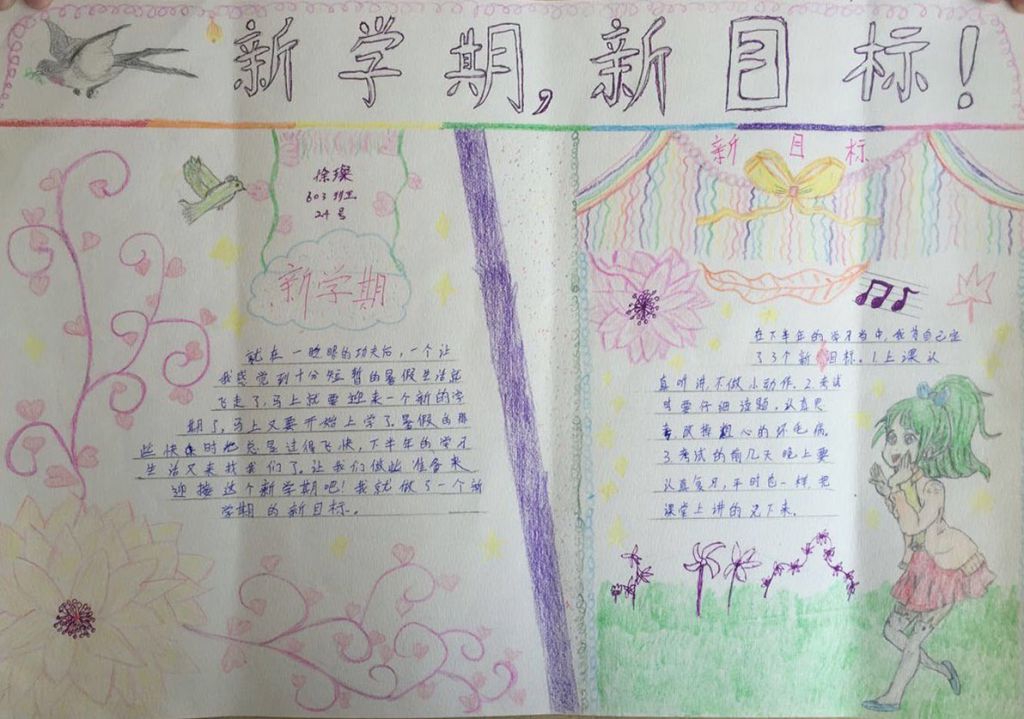 新学期,新目标!
徐璨
603班
24号
新学期
就在一眨眼的功夫后,一个让
我感觉到十分短暂的暑假生活就
飞走了,马上就要迎来一个新的学
期了,马上又要开始上学了。暑假的那
些快乐时光总是过得飞快,下半年的学习
生活又来找我们了。让我们做些准备来
迎接这个新学期吧!我就做了一个新
学期的新目标。
新目标
在下半年的学习当中,我为自己定
了3个新目标。1上课认
真听讲,不做小动作。2考试
时要仔细读题,认真思
考,改掉粗心的坏毛病。
3考试的前几天晚上要
认真复习,平时也一样,把
课堂上讲的记下来。